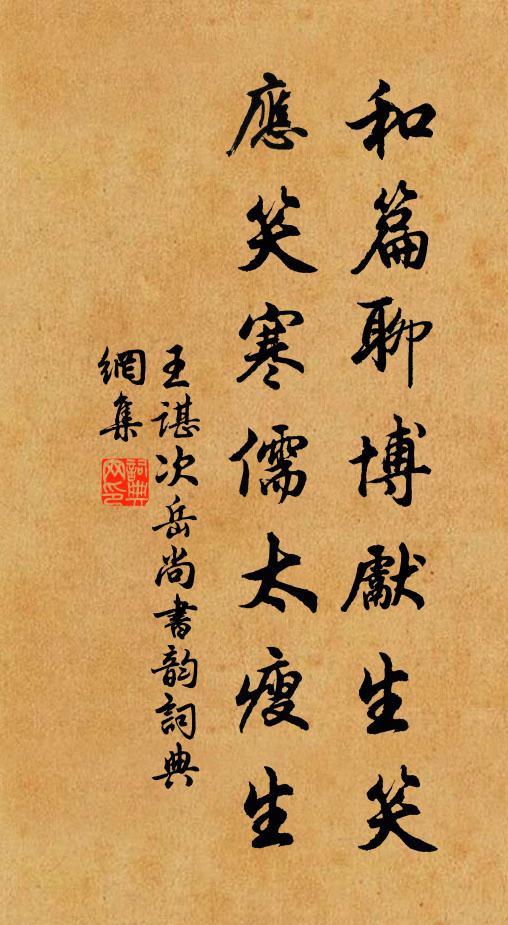 和篇聊博獻生笑
應笑寒儒太瘦生
王諶次岳尚書韵詞典
網集
詞典網印